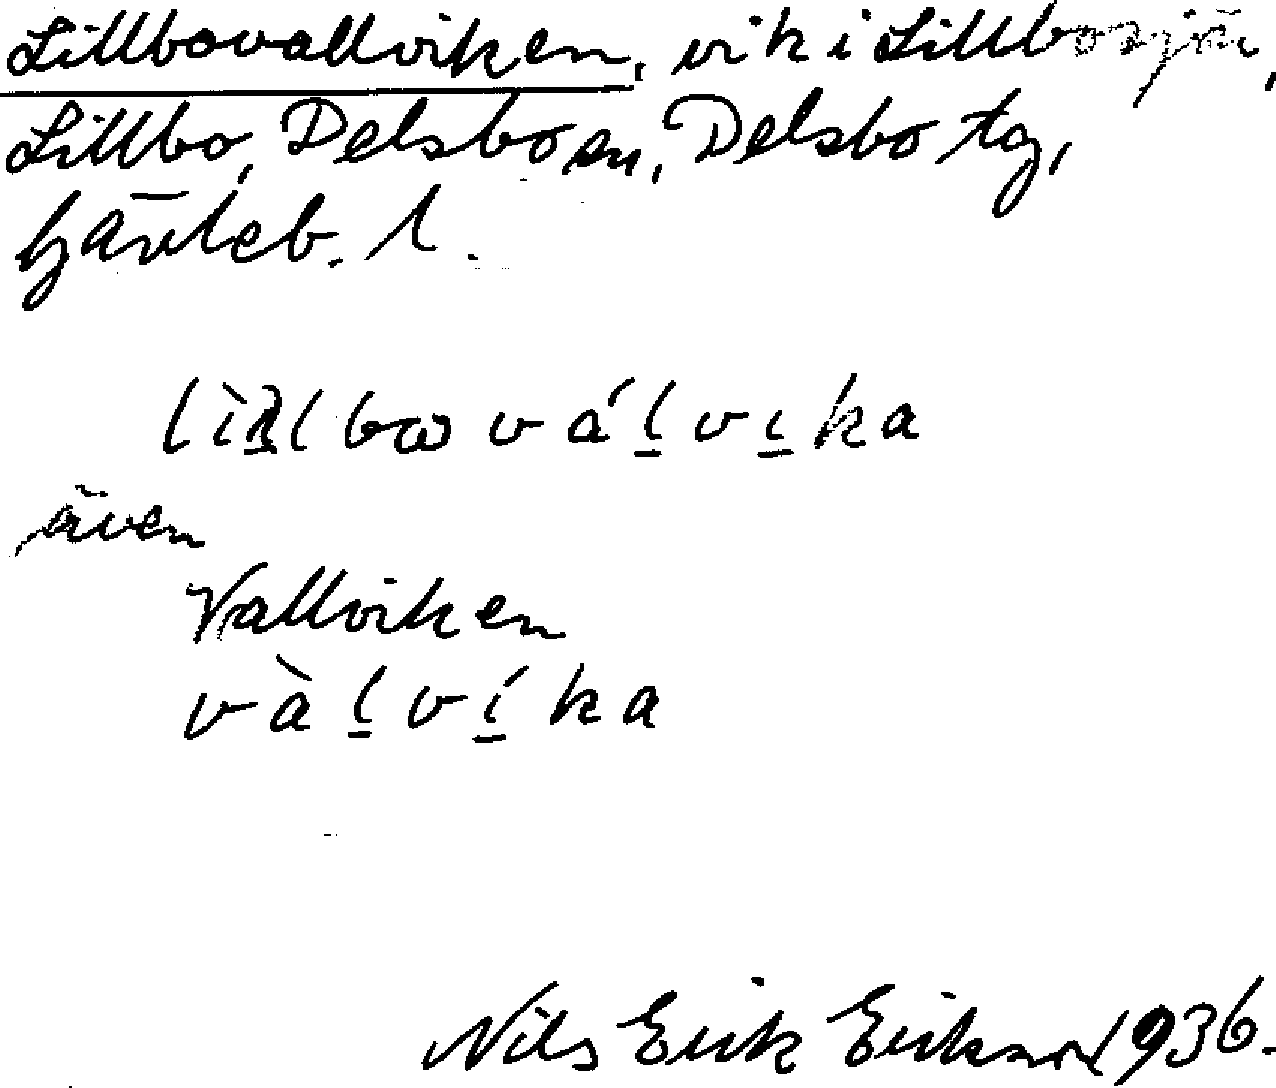 Lillbovallviken, vik i Lillbosjön,
Lillbo, Delsbo sn, Delsbo tg,
Gävleb. l.
även
Vallviken
vàl̠ví̠ka
Nils Erik Erikson 1936.